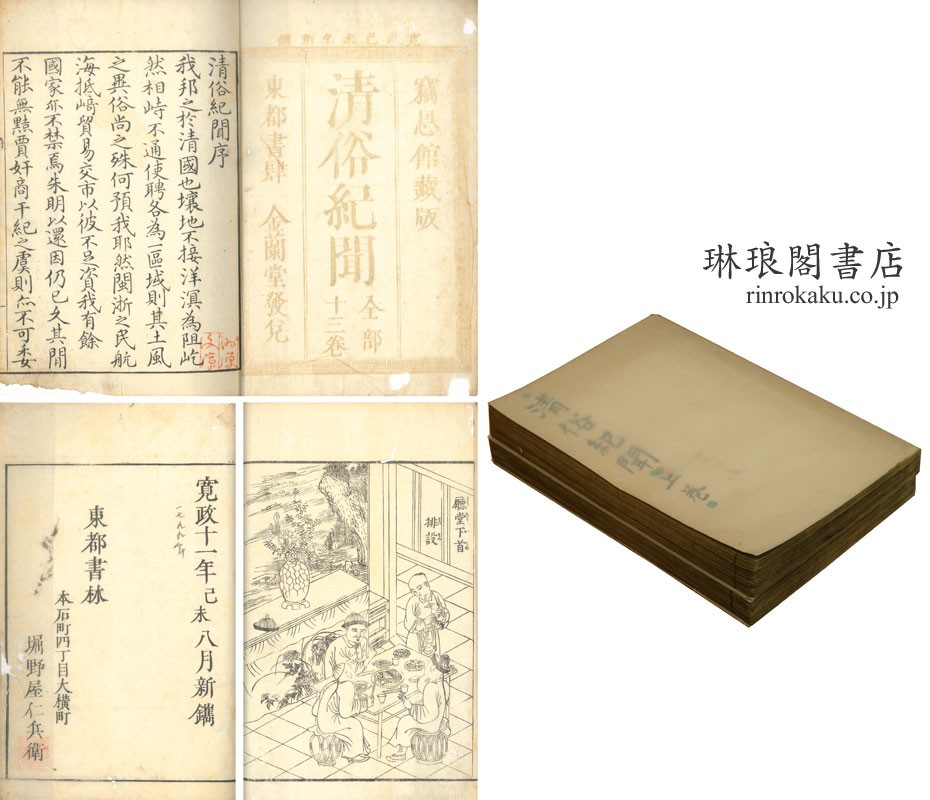 館藏版
清俗紀聞
全部
十三卷
東都書肆 金蘭堂發兌
清俗紀聞序
我邦之於清國也壤地不接洋溟為阻屹
然相峙不通使聘各為一區域則其土風
之異俗尚之殊何預我耶然閩浙之民航
海抵﨑貿易交市以彼不足資我有餘
國家亦不禁焉朱明以還因仍已久其間
不能無黠賈奸商干紀之虞則亦不可委
琳琅閣書店
rinrokaku.co.jp
清俗紀聞
廳堂下首
排設
寛政十一年己未八月新鐫
一七九九年
東都書林
本石町四丁目大橫町
堀野屋仁兵衛